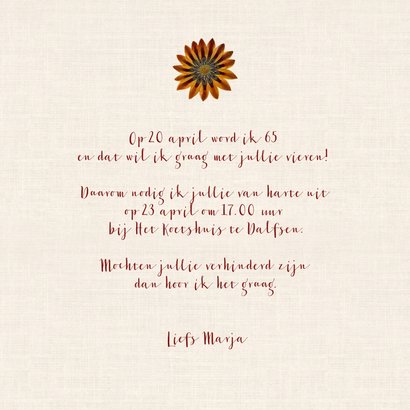 Op 20 april word ik 65
en dat wil ik graag met jullie vieren!
Daarom nodig ik jullie van harte uit
op 23 april om 17.00 uur
bij Het Koetshuis te Dalfsen.
Mochten jullie verhinderd zijn
dan hoor ik het graag.
Liefs Marja